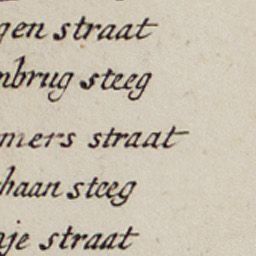 gen straat
nbrug steeg
mers straat
haan steeg
je straat